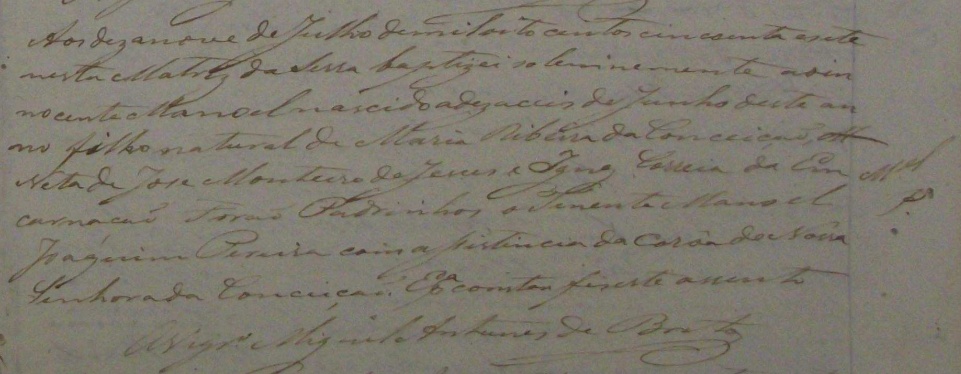 Aos dezanove de Julho de mil oito centos cincoenta e sete
nesta Matriz da Serra baptizei solemnemente ao in
nocente Manoel nascido a dezaceis de Junho deste an
no filho natural de Maria Ribeira da Conceição,
Neta de Jose Monteiro de Jesus e Ignez Correia da En
carnacaõ Foraõ Padrinhos o Tenente Manoel
Joaquim Pereira com a assistencia da Corôa de Nossa
Senhora da Conceiçaõ. E pa constar fis este assento
O Vigro Miguel Antunes de Brito
Mel